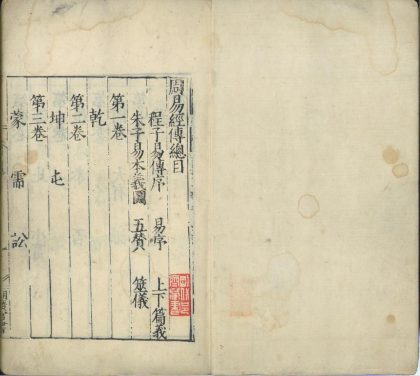 周易經傳總目
程子易傳序 易序 上下篇義
朱子易本義圖 五贊 筮儀
第一卷
乾
第二卷
坤 屯
第三卷
蒙 需 訟